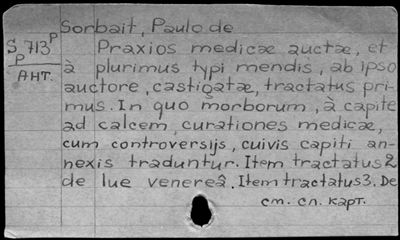 Sorbait, Paulo de
S 713 P
P
АНТ.
Praxios medicæ auctæ, et
à plurimus typi mendis, ab ipso
auctore, castigatæ, tractatus pri-
mus. In quo morborum, à capite
ad calcem, curationes medicæ,
cum controversijs, cuivis capiti an-
nexis traduntur. Item tractatus 2
de lue venereâ. Item tractatus 3. De
см. сл. карт.